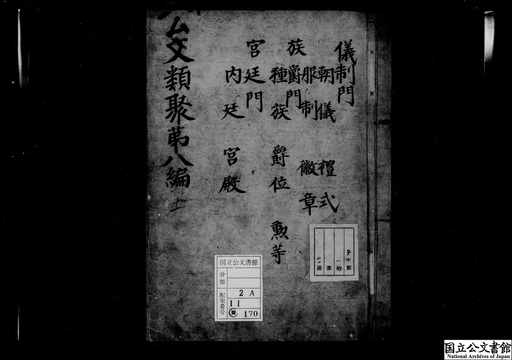 公文類聚第八編 上
儀制門
朝儀 禮式
服制 徽章
族爵門
種族 爵位 勲等
宮廷門
内廷 宮殿
国立公文書館
分類
配架番号
2A
11
170
国立公文書館
National Archives of Japan